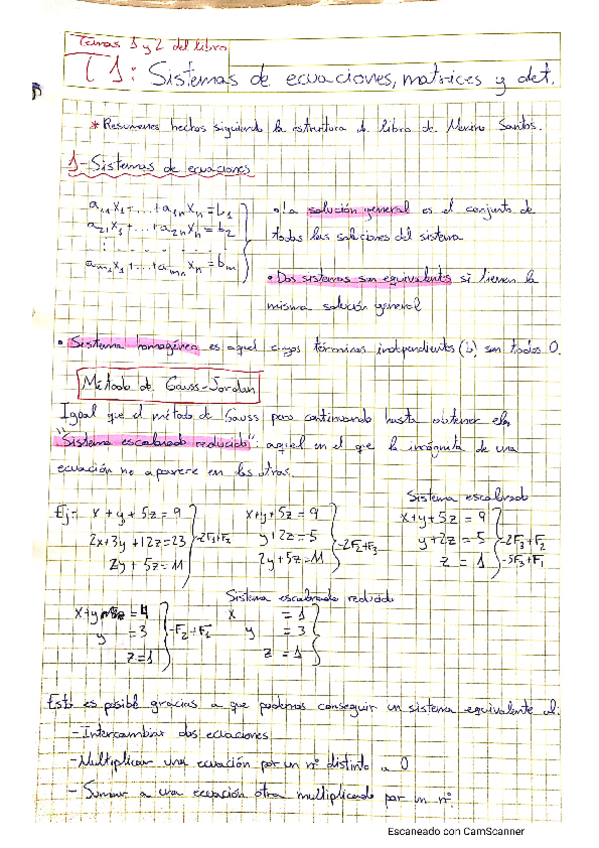 Temas 1 y 2 del libro
T1: Sistemas de ecuaciones, matrices y det.
* Resumenes hechos siguiendo la estructura de libro de Merino Santos.
1- Sistemas de ecuaciones
a₁₁x₁+...+a₁ₙxₙ=b₁
a₂₁x₁+...+a₂ₙxₙ=b₂
aₘ₁x₁+...+aₘₙxₙ=bₘ
• La solución general es el conjunto de
todas las soluciones del sistema
• Dos sistemas son equivalentes si tienen la
misma solución general
• Sistema homogéneo es aquel cuyos términos independientes (b) son todos 0.
Método de Gauss-Jordan
Igual que el método de Gauss pero continuando hasta obtener el
"Sistema escalonado reducido": aquel en el que la incógnita de una
ecuación no aparece en las otras.
Ej:
x+y+5z=9
2x+3y+12z=23
2y+5z=11
-2F₁+F₂
x+y+5z=9
y+2z=5
2y+5z=11
-2F₂+F₃
Sistema escalonado
x+y+5z=9
y+2z=5
z=1
-2F₃+F₂
-5F₃+F₁
x+y=4
y=3
z=1
-F₂+F₁
Sistema escalonado reducido
x=1
y=3
z=1
Esto es posible gracias a que podemos conseguir un sistema equivalente al:
-Intercambiar dos ecuaciones
-Multiplicar una ecuación por un nº distinto a 0
-Sumar a una ecuación otra multiplicando por un nº.
Escaneado con CamScanner